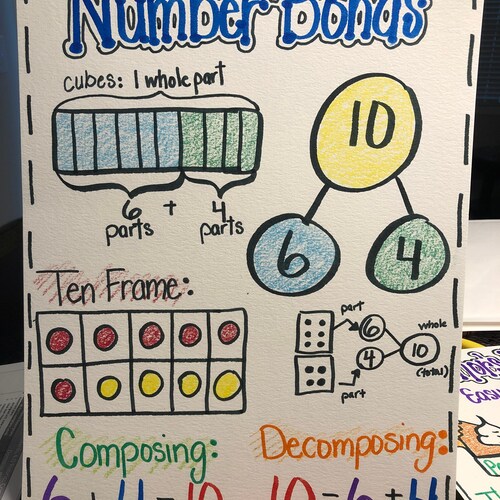 Number Bonds
cubes: 1 whole part
6 + 4
parts parts
10
6 4
Ten Frame:
part
6
whole
10
4
(total)
part
Composing: Decomposing:
6+4=10 10=6+4
Easy